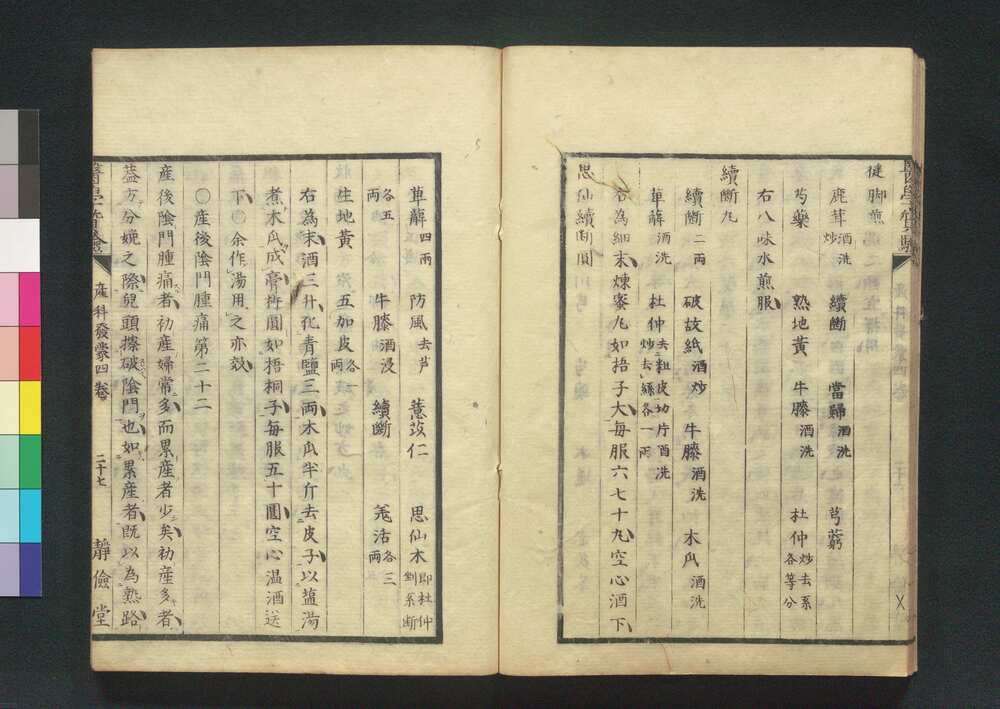 健脚煎
鹿茸酒洗炒 續斷 當歸酒洗 芎藭
芍藥 熟地黄 牛膝酒洗 杜仲炒去糸各等分
右八味水煎服
續斷丸
續斷二兩 破故紙酒炒 牛膝酒洗 木瓜酒洗
萆薢酒洗 杜仲去粗皮切片酒洗炒去絲各一兩
右為細末煉蜜丸如捂子大每服六七十丸空心酒下
思仙續斷圓
萆薢四兩 防風去芦 薏苡仁 思仙木即杜仲剉系斷
各五兩 牛膝酒浸 續斷 羗活各三兩
生地黄 五加皮各一兩
右為末酒三升化青鹽三兩木瓜半斤去皮子以塩湯
煮木瓜成膏杵圓如梧桐子每服五十圓空心温酒送
下〇余作湯用之亦效
〇産後陰門腫痛第二十二
産後陰門腫痛者初産婦常多而累産者少矣初産多者
蓋方分娩之際兒頭擦破陰門也如累産者既以為熟路
産科發蒙四卷 二十七 靜儉堂